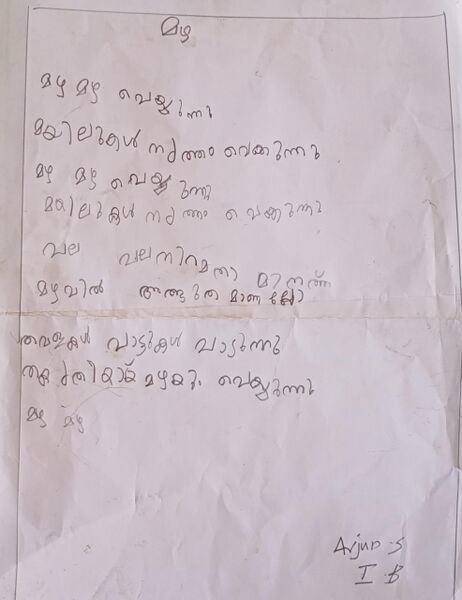 മഴ
മഴ മഴ പെയ്യുന്നു
മയിലുകൾ നൃത്തം വെക്കുന്നു
മഴ മഴ പെയ്യുന്നു
മയിലുകൾ നൃത്തം വെക്കുന്നു
പല പല നിറമതാ മാനത്ത്
മഴവിൽ അത്ഭുത മാണല്ലോ
തവളകൾ പാട്ടുകൾ പാടുന്നു
മഴയും പെയ്യുന്നു
മഴ മഴ
Arjun S
I B